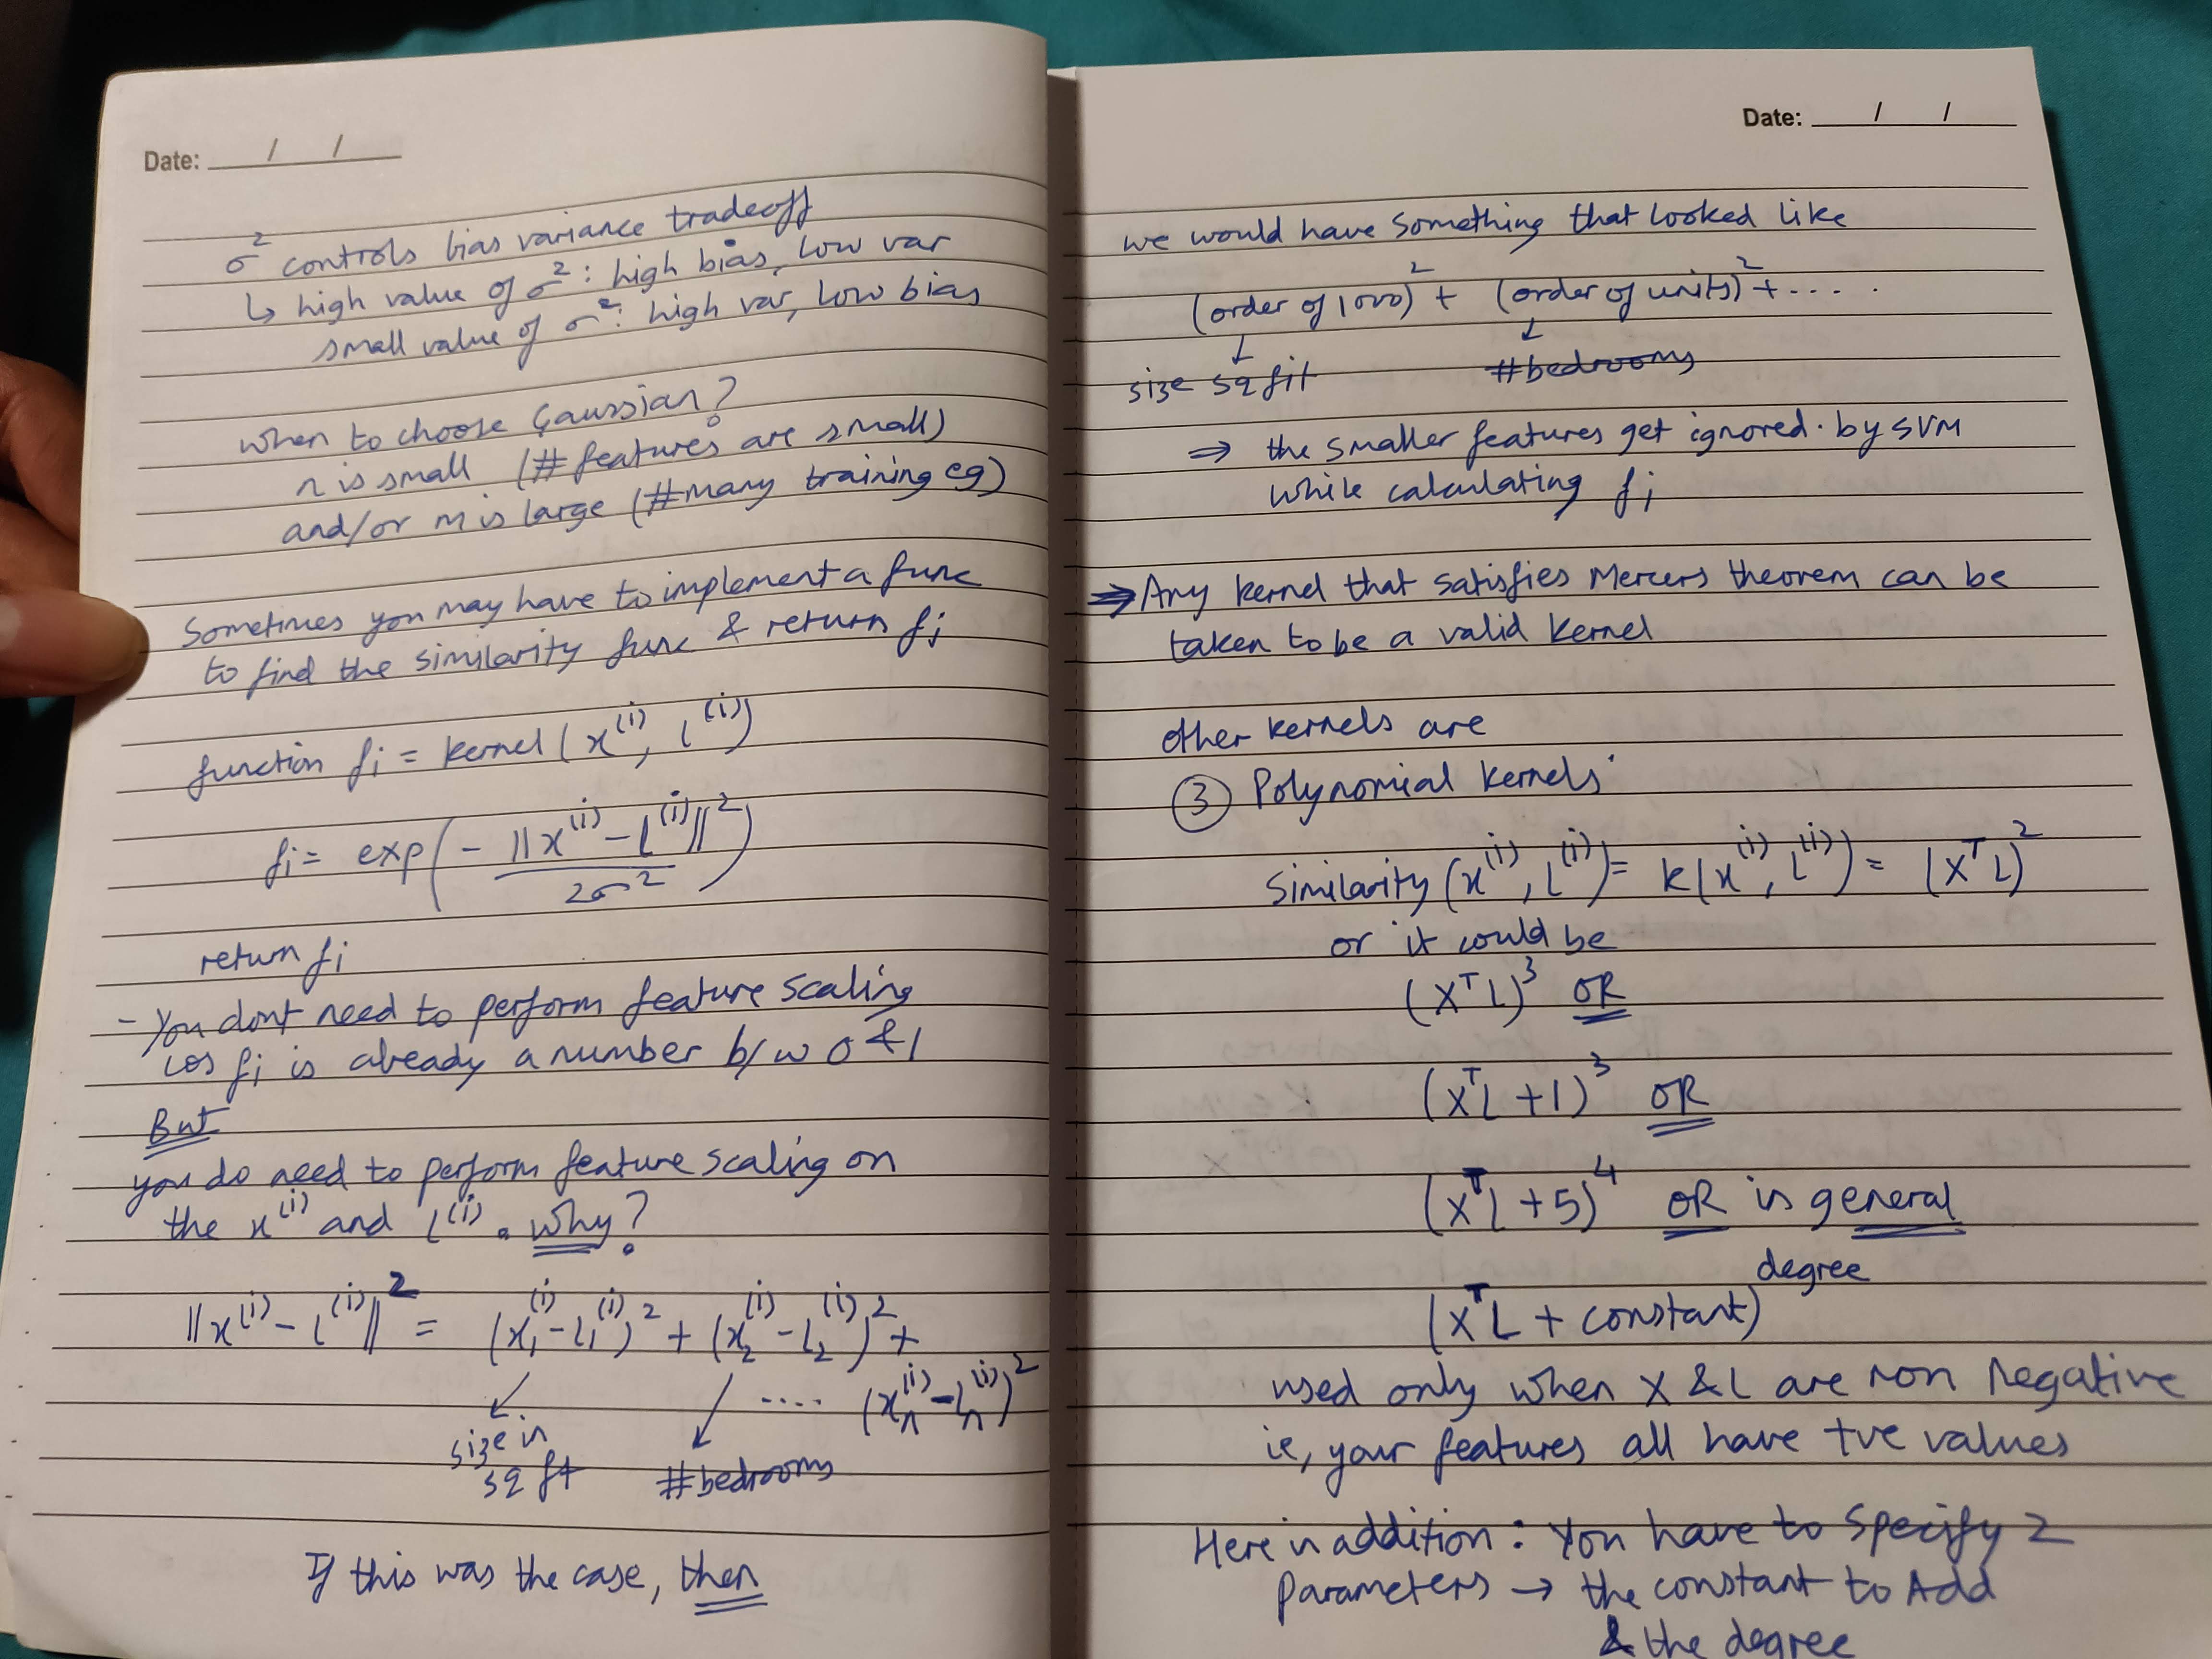 Date: ___/___/___
σ² controls bias variance tradeoff
↳ high value of σ²: high bias, low var
small value of σ²: high var, low bias
when to choose Gaussian?
n is small (# features are small)
and/or m is large (#many training eg)
Sometimes you may have to implement a func
to find the similarity func & return fi
function fi = kernel (x^(i), l^(i))
fi = exp(- ||x^(i) - l^(i)||² / 2σ²)
return fi
- You dont need to perform feature scaling
cos fi is already a number b/w 0 & 1
But
you do need to perform feature scaling on
the x^(i) and l^(i). Why?
||x^(i) - l^(i)||² = (x₁^(i) - l₁^(i))² + (x₂^(i) - l₂^(i))² +
.... (xₙ^(i) - lₙ^(i))²
size in
sq ft
#bedrooms
If this was the case, then
Date: ___/___/___
we would have something that looked like
(order of 1000)² + (order of units)² + ....
↓ ↓
size sq fit #bedrooms
⇒ the smaller features get ignored. by SVM
while calculating fi
⇒ Any kernel that satisfies Mercers theorem can be
taken to be a valid kernel
other kernels are
③ Polynomial kernels
Similarity (x^(i), l^(i)) = k(x^(i), l^(i)) = (X^T L)²
or it could be
(X^T L)³ OR
(X^T L + 1)³ OR
(X^T L + 5)⁴ OR is general
(X^T L + constant)^degree
used only when X & L are non negative
ie, your features all have +ve values
Here in addition: You have to specify 2
parameters → the constant to Add
& the degree